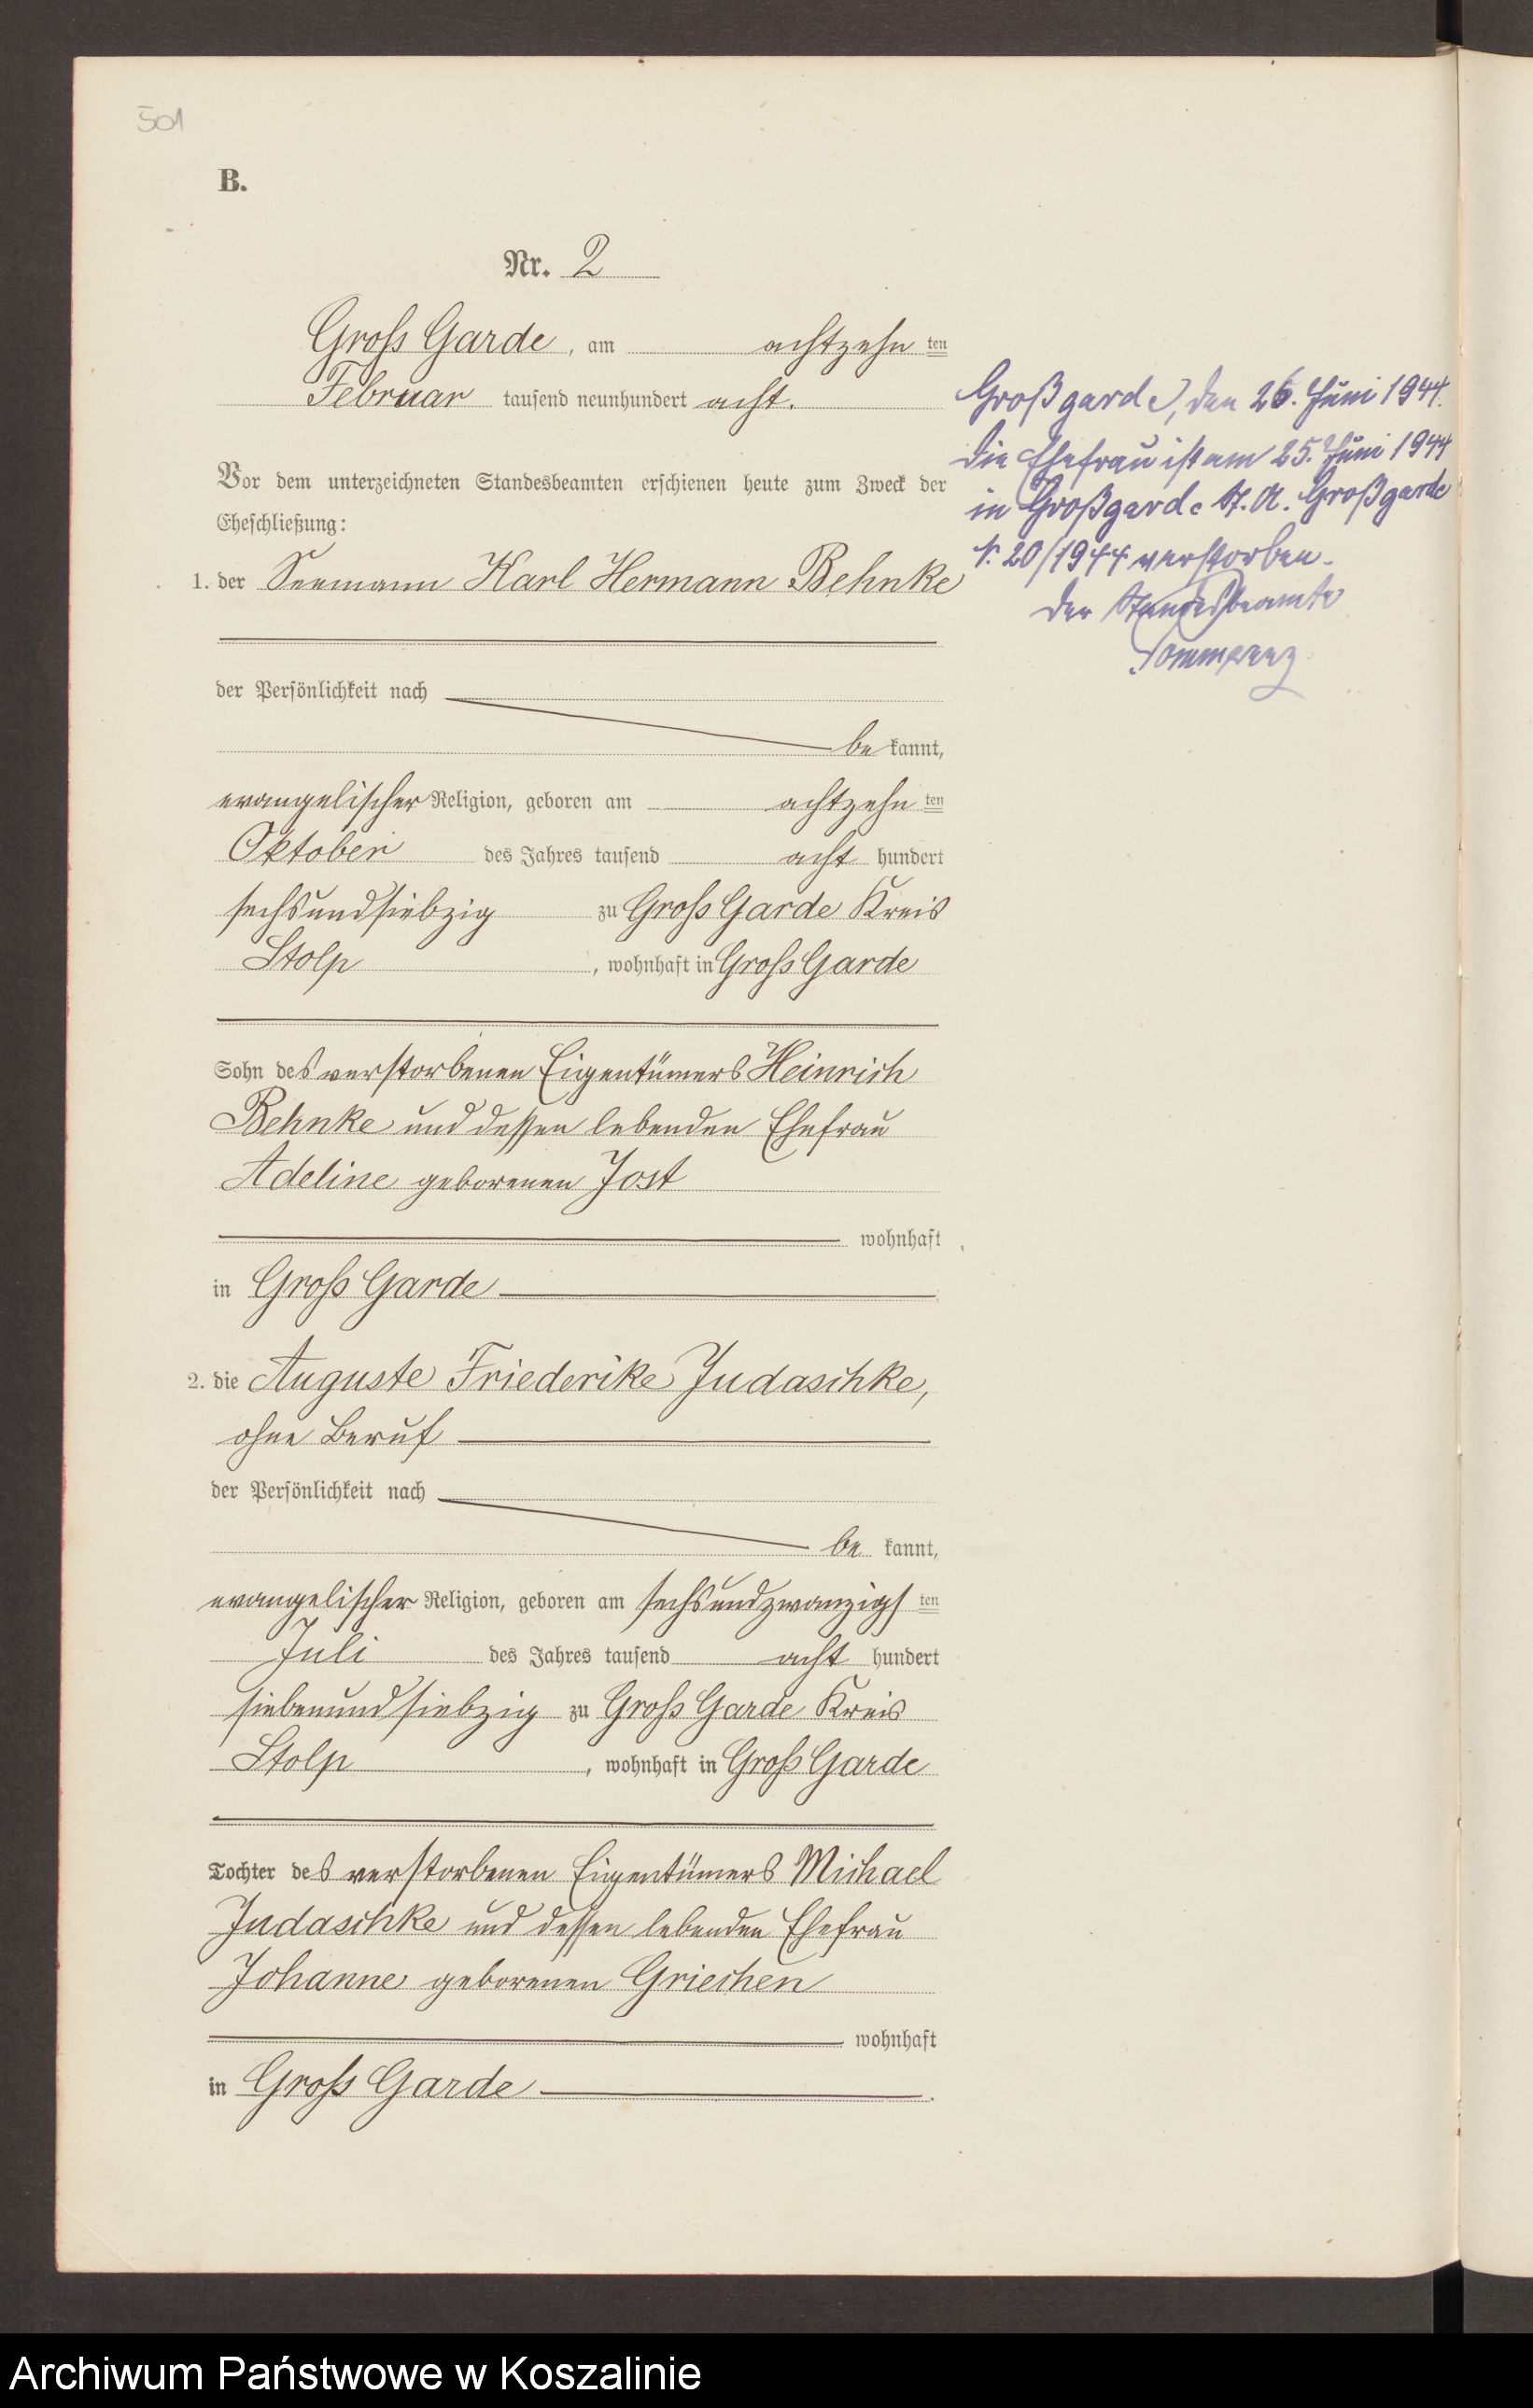 501
B.
Nr. 2
Gross Garde, am achtzehn ten
Februar tausend neunhundert acht.
Vor dem unterzeichneten Standesbeamten erschienen heute zum Zweck der
Eheschließung:
1. der Seemann Karl Hermann Behnke
der Persönlichkeit nach
be kannt,
evangelischer Religion, geboren am achtzehn ten
Oktober des Jahres tausend acht hundert
sechsundsiebzig zu Gross Garde Kreis
Stolp, wohnhaft in Gross Garde
Sohn des verstorbenen Eigentümers Heinrich
Behnke und dessen lebenden Ehefrau
Adeline geborenen Jost
wohnhaft
in Gross Garde
2. die Auguste Friederike Judaschke,
ohne Beruf
der Persönlichkeit nach
be kannt,
evangelischer Religion, geboren am sechsundzwanzigs ten
Juli des Jahres tausend acht hundert
siebenundsiebzig zu Gross Garde Kreis
Stolp, wohnhaft in Gross Garde
Tochter des verstorbenen Eigentümers Michael
Judaschke und dessen lebenden Ehefrau
Johanne geborenen Griechen
wohnhaft
in Gross Garde.
Großgarde, den 26. Juni 1944.
Die Ehefrau ist am 25. Juni 1944
in Großgarde St. A. Großgarde
Nr. 20/1944 verstorben.
Der Standesbeamte
Archiwum Państwowe w Koszalinie